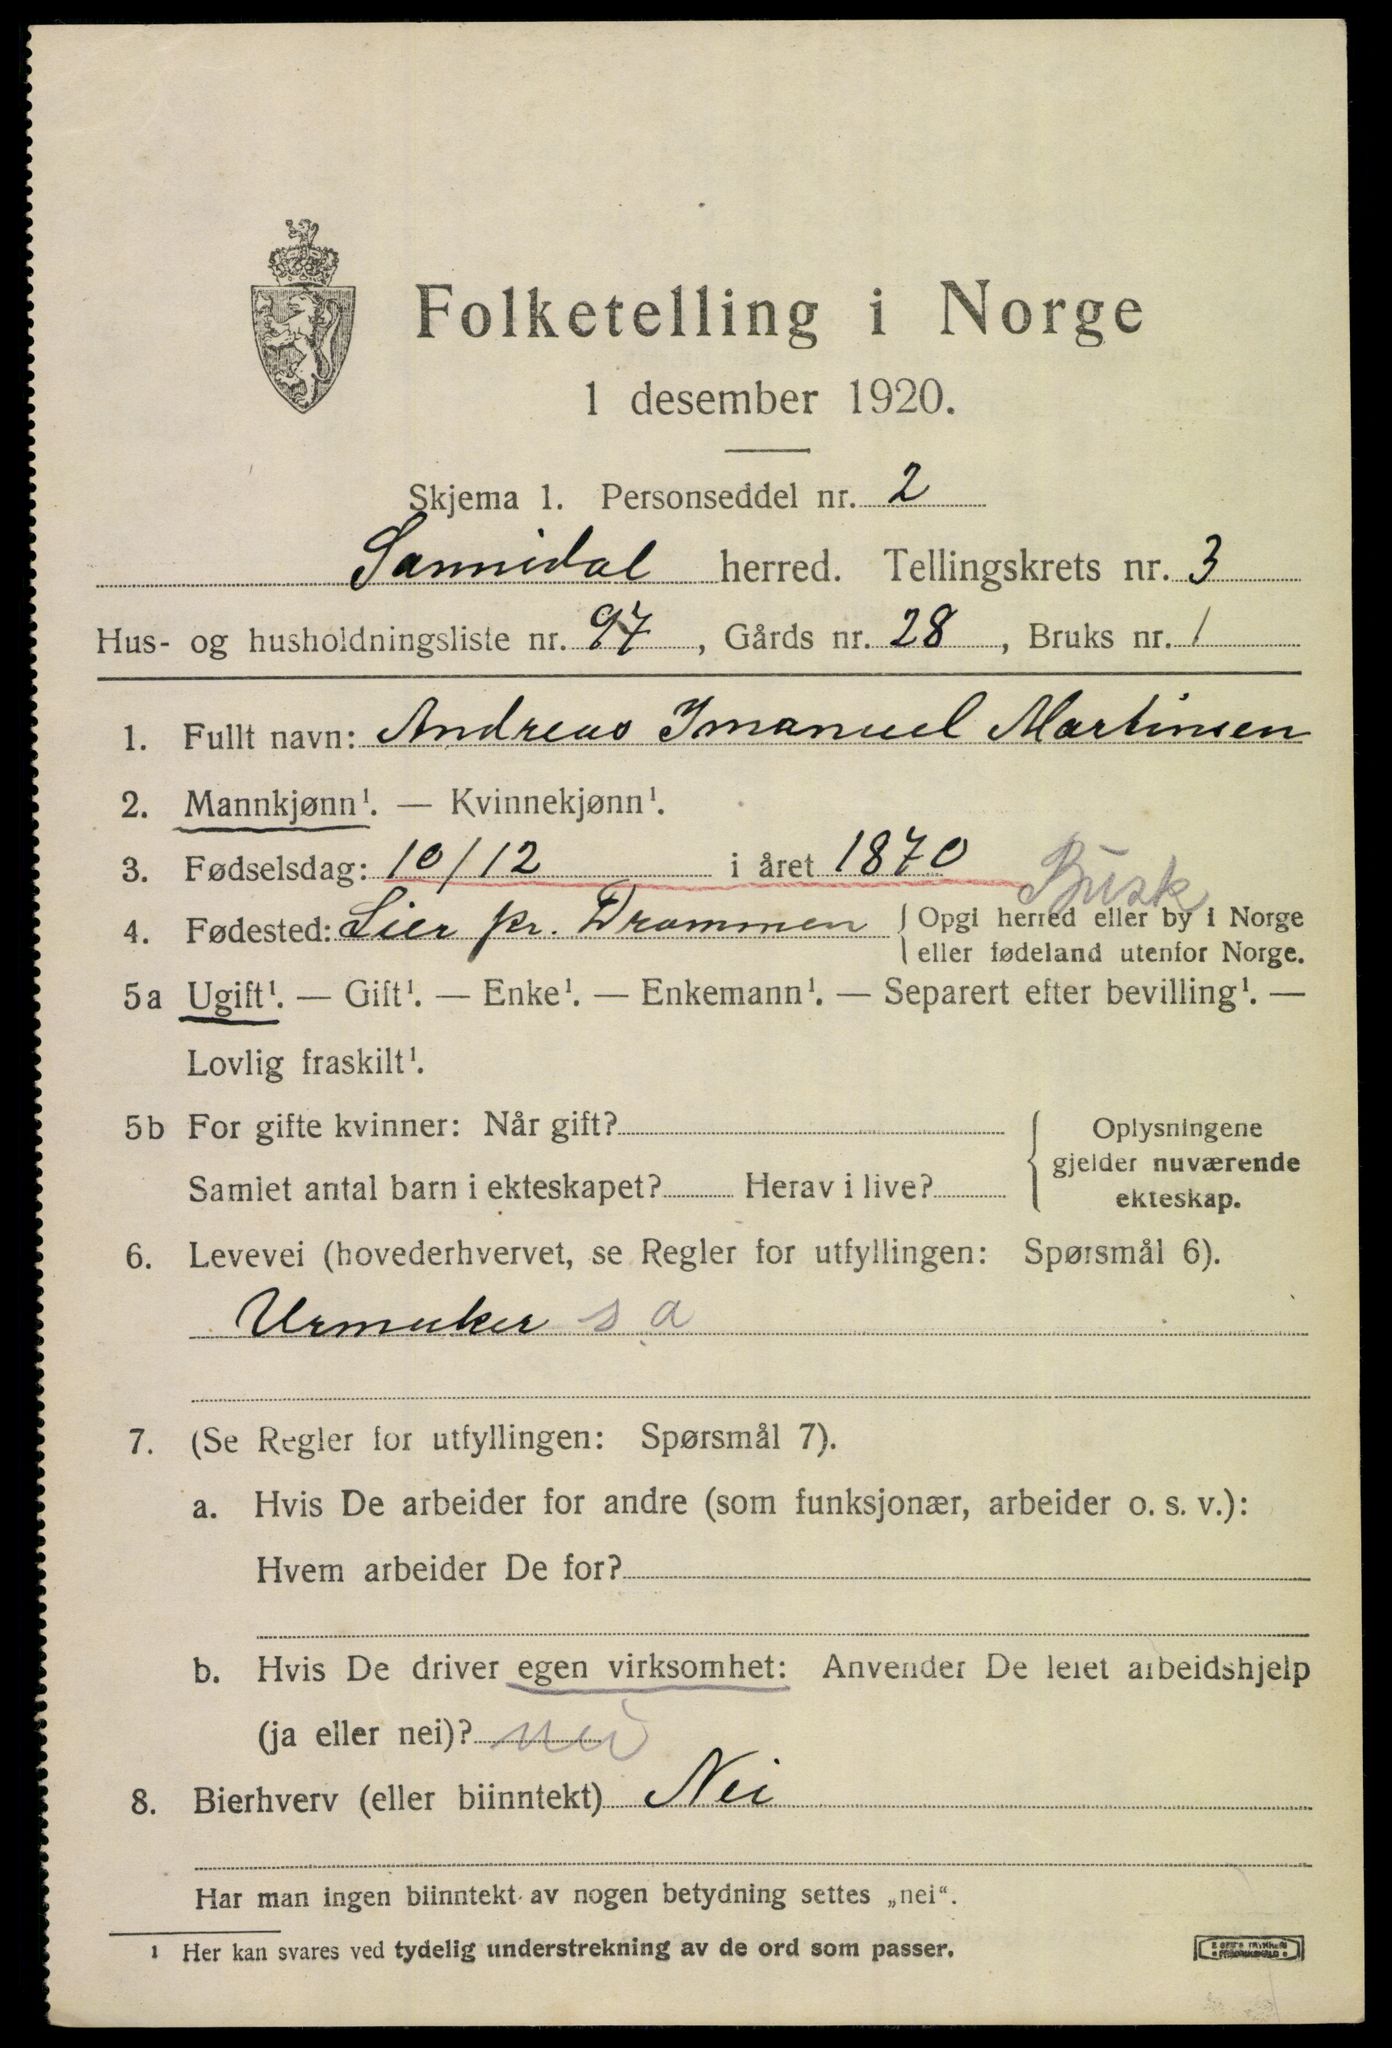 Folketelling i Norge
1 desember 1920.
Skjema 1. Personseddel nr. 2
Sannidal herred. Tellingskrets nr. 3
Hus- og husholdningsliste nr. 97, Gårds nr. 28, Bruks nr. 1
1. Fullt navn: Andreas Imanuel Martinsen
2. Mannkjønn¹. — Kvinnekjønn¹.
3. Fødselsdag: 10/12 i året 1870
Busk
4. Fødested: Lier pr. Drammen { Opgi herred eller by i Norge
eller fødeland utenfor Norge.
5a Ugift¹. — Gift¹. — Enke¹. — Enkemann¹. — Separert efter bevilling¹. —
Lovlig fraskilt¹.
5b For gifte kvinner: Når gift?
Samlet antal barn i ekteskapet? Herav i live?
Oplysningene
gjelder nuværende
ekteskap.
6. Levevei (hovederhvervet, se Regler for utfyllingen: Spørsmål 6).
Urmaker s a
7. (Se Regler for utfyllingen: Spørsmål 7).
a. Hvis De arbeider for andre (som funksjonær, arbeider o. s. v.):
Hvem arbeider De for?
b. Hvis De driver egen virksomhet: Anvender De leiet arbeidshjelp
(ja eller nei)? nei
8. Bierhverv (eller biinntekt) Nei
Har man ingen biinntekt av nogen betydning settes „nei“.
¹ Her kan svares ved tydelig understrekning av de ord som passer.